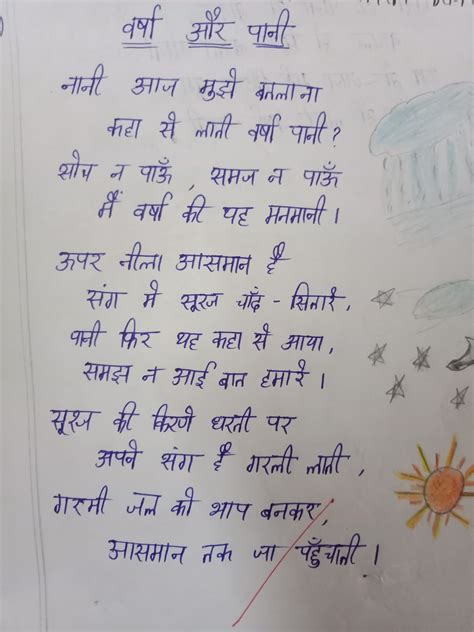 वर्षा और पानी
नानी आज मुझे बतलाना
कहा से लाती वर्षा पानी?
सोच न पाऊँ, समज न पाऊँ
मैं वर्षा की यह मनमानी।
ऊपर नीला आसमान है
संग मे सूरज चाँद - सितारे,
पानी फिर यह कहा से आया,
समझ न आई बात हमारे।
सूरज की किरणे धरती पर
अपने संग है गरली लाती,
गरमी जल को भाप बनकर,
आसमान तक जा पहुँचाती।